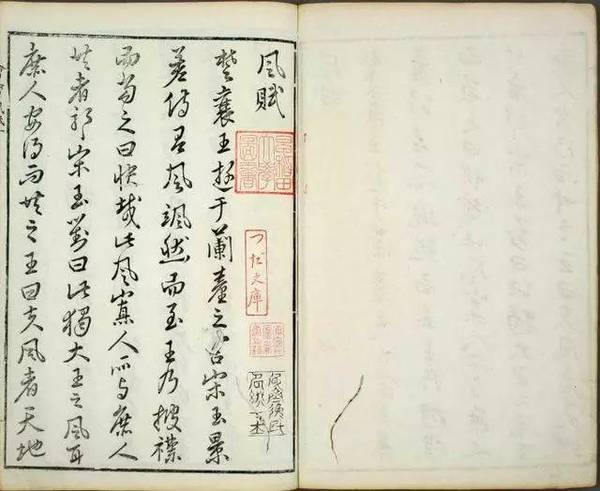 風賦
楚襄王遊于蘭臺之宮宋玉景
差侍有風颯然而至王乃披襟
而當之曰快哉此風寡人所与庶人
共者邪宋玉對曰此獨大王之風耳
庶人安得而共之王曰夫風者天地
早稲田大學圖書
つだ文庫